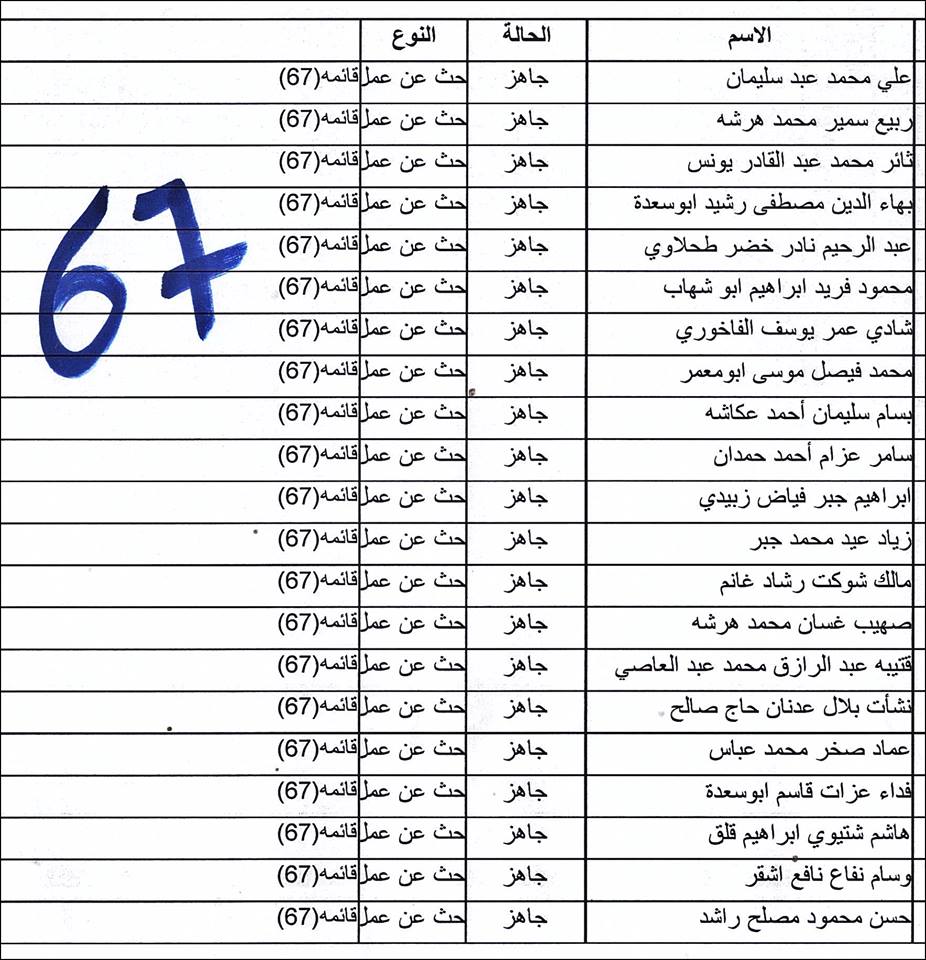 الاسم الحالة النوع
علي محمد عبد سليمان جاهز حث عن عمل قائمه(67)
ربيع سمير محمد هرشه جاهز حث عن عمل قائمه(67)
ثائر محمد عبد القادر يونس جاهز حث عن عمل قائمه(67)
بهاء الدين مصطفى رشيد ابوسعدة جاهز حث عن عمل قائمه(67)
عبد الرحيم نادر خضر طحلاوي جاهز حث عن عمل قائمه(67)
محمود فريد ابراهيم ابو شهاب جاهز حث عن عمل قائمه(67)
شادي عمر يوسف الفاخوري جاهز حث عن عمل قائمه(67)
محمد فيصل موسى ابومعمر جاهز حث عن عمل قائمه(67)
بسام سليمان أحمد عكاشه جاهز حث عن عمل قائمه(67)
سامر عزام أحمد حمدان جاهز حث عن عمل قائمه(67)
ابراهيم جبر فياض زبيدي جاهز حث عن عمل قائمه(67)
زياد عيد محمد جبر جاهز حث عن عمل قائمه(67)
مالك شوكت رشاد غانم جاهز حث عن عمل قائمه(67)
صهيب غسان محمد هرشه جاهز حث عن عمل قائمه(67)
قتيبه عبد الرازق محمد عبد العاصي جاهز حث عن عمل قائمه(67)
نشأت بلال عدنان حاج صالح جاهز حث عن عمل قائمه(67)
عماد صخر محمد عباس جاهز حث عن عمل قائمه(67)
فداء عزات قاسم ابوسعدة جاهز حث عن عمل قائمه(67)
هاشم شتيوي ابراهيم قلق جاهز حث عن عمل قائمه(67)
وسام نفاع نافع اشقر جاهز حث عن عمل قائمه(67)
حسن محمود مصلح راشد جاهز حث عن عمل قائمه(67)
67